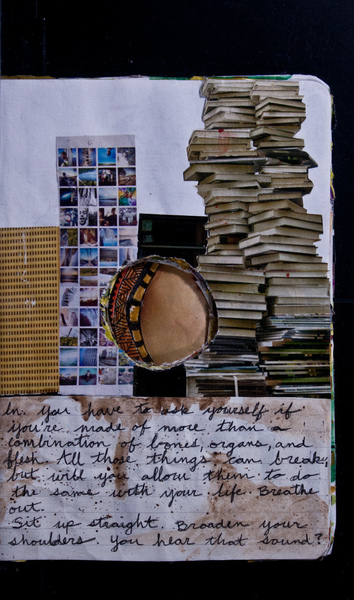 In. You have to ask yourself if
you're made of more than a
combination of bones, organs, and
flesh. All those things can break,
but will you allow them to do
the same with your life. Breathe
out.
Sit up straight. Broaden your
shoulders. You hear that sound?